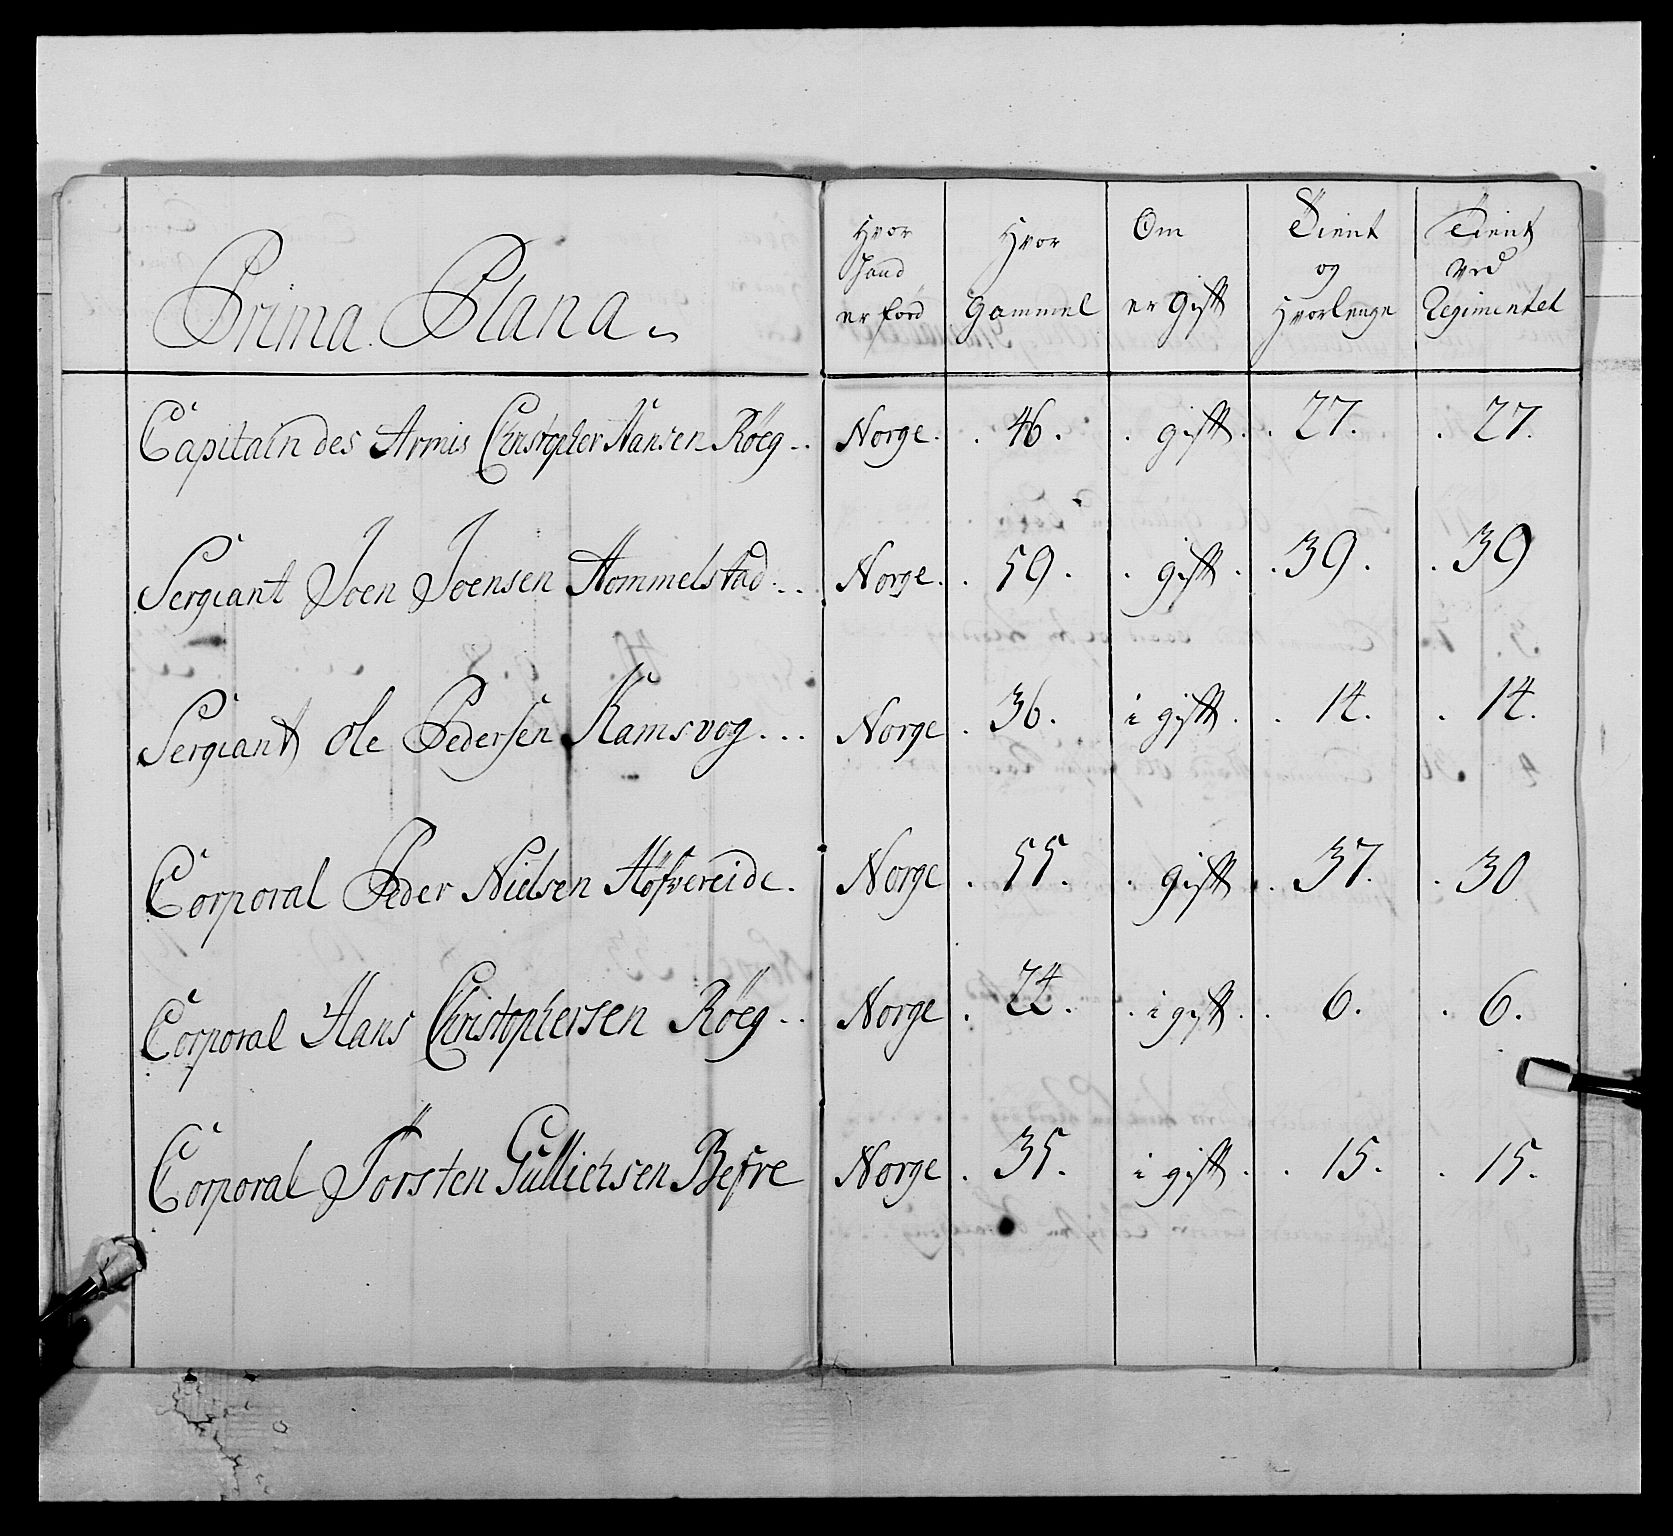 Prima Plana
Hvor hand er förd
Hvor Gammel
Om er Gift
Tient og Hvorlenge
Tient ved Regimentet
Capitain des Armis Christopher Hansen Røeg .. Norge. . 46. . gift. . 27. . 27.
Sergiant Joen Joensen Hommelstad ... Norge. . 59. . gift. . 39. . 39
Sergiant Ole Pedersen Ramsvog ... Norge . 36. i gift. . 14. . 14.
Corporal Peder Nielsen Høfvereide. Norge . 55. . gift . 37. . 30
Corporal Hans Christophersen Røeg .. Norge . 24. . i gift. . 6. . 6.
Corporal Torsten Gullichsen Befre Norge . 35. i gift. . 15. . 15.